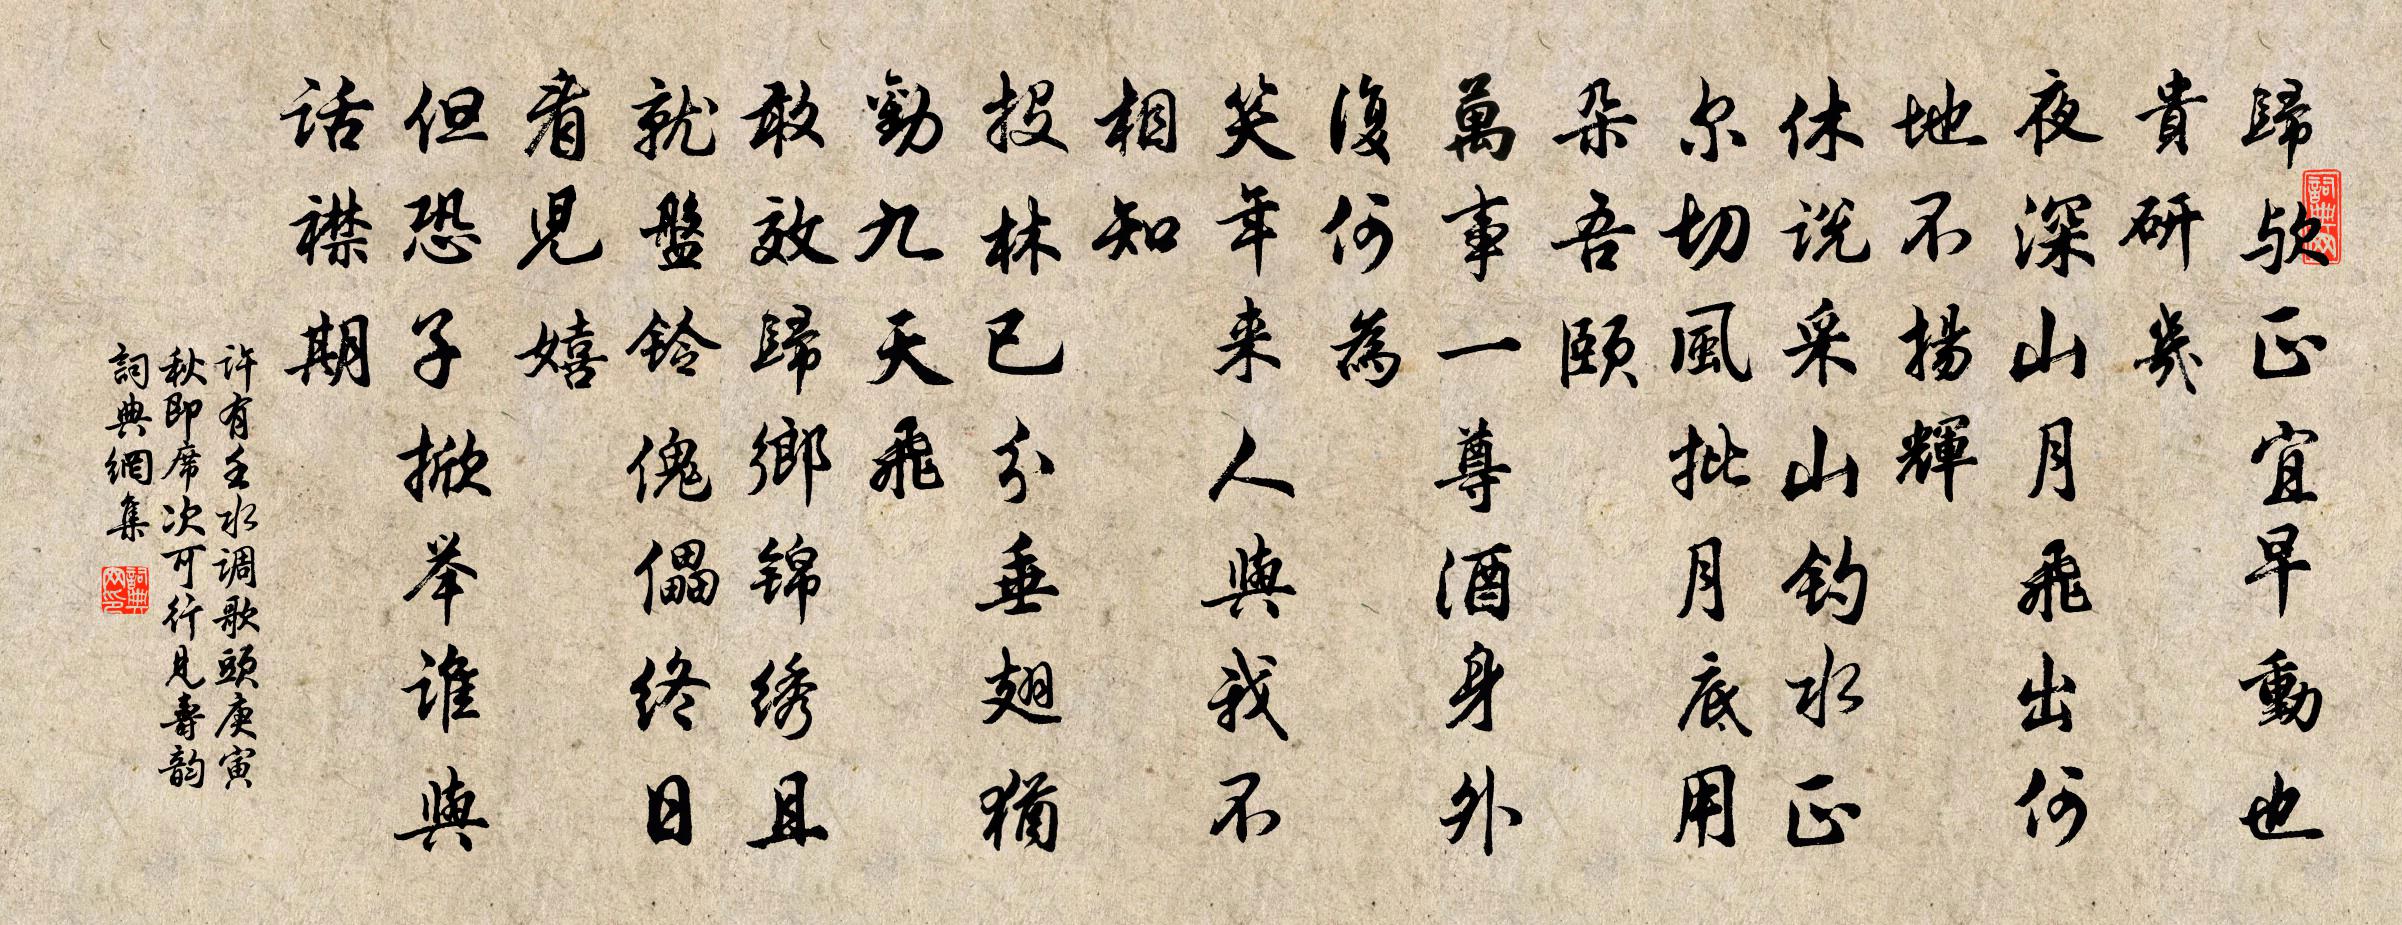 歸歟正宜早動也
貴研幾
夜深山月飛出何
地不揚輝
休說采山釣水正
尔切風批月底用
朵吾頤
萬事一尊酒身外
復何為
笑年来人與我不
相知
投林已分垂翅猶
勸九天飛
敢效歸鄉錦绣且
就盤鈴傀儡终日
看兒嬉
但恐子掀举誰與
话襟期
许有壬水调歌頭庚寅
秋即席次可行見壽韵
詞典網集